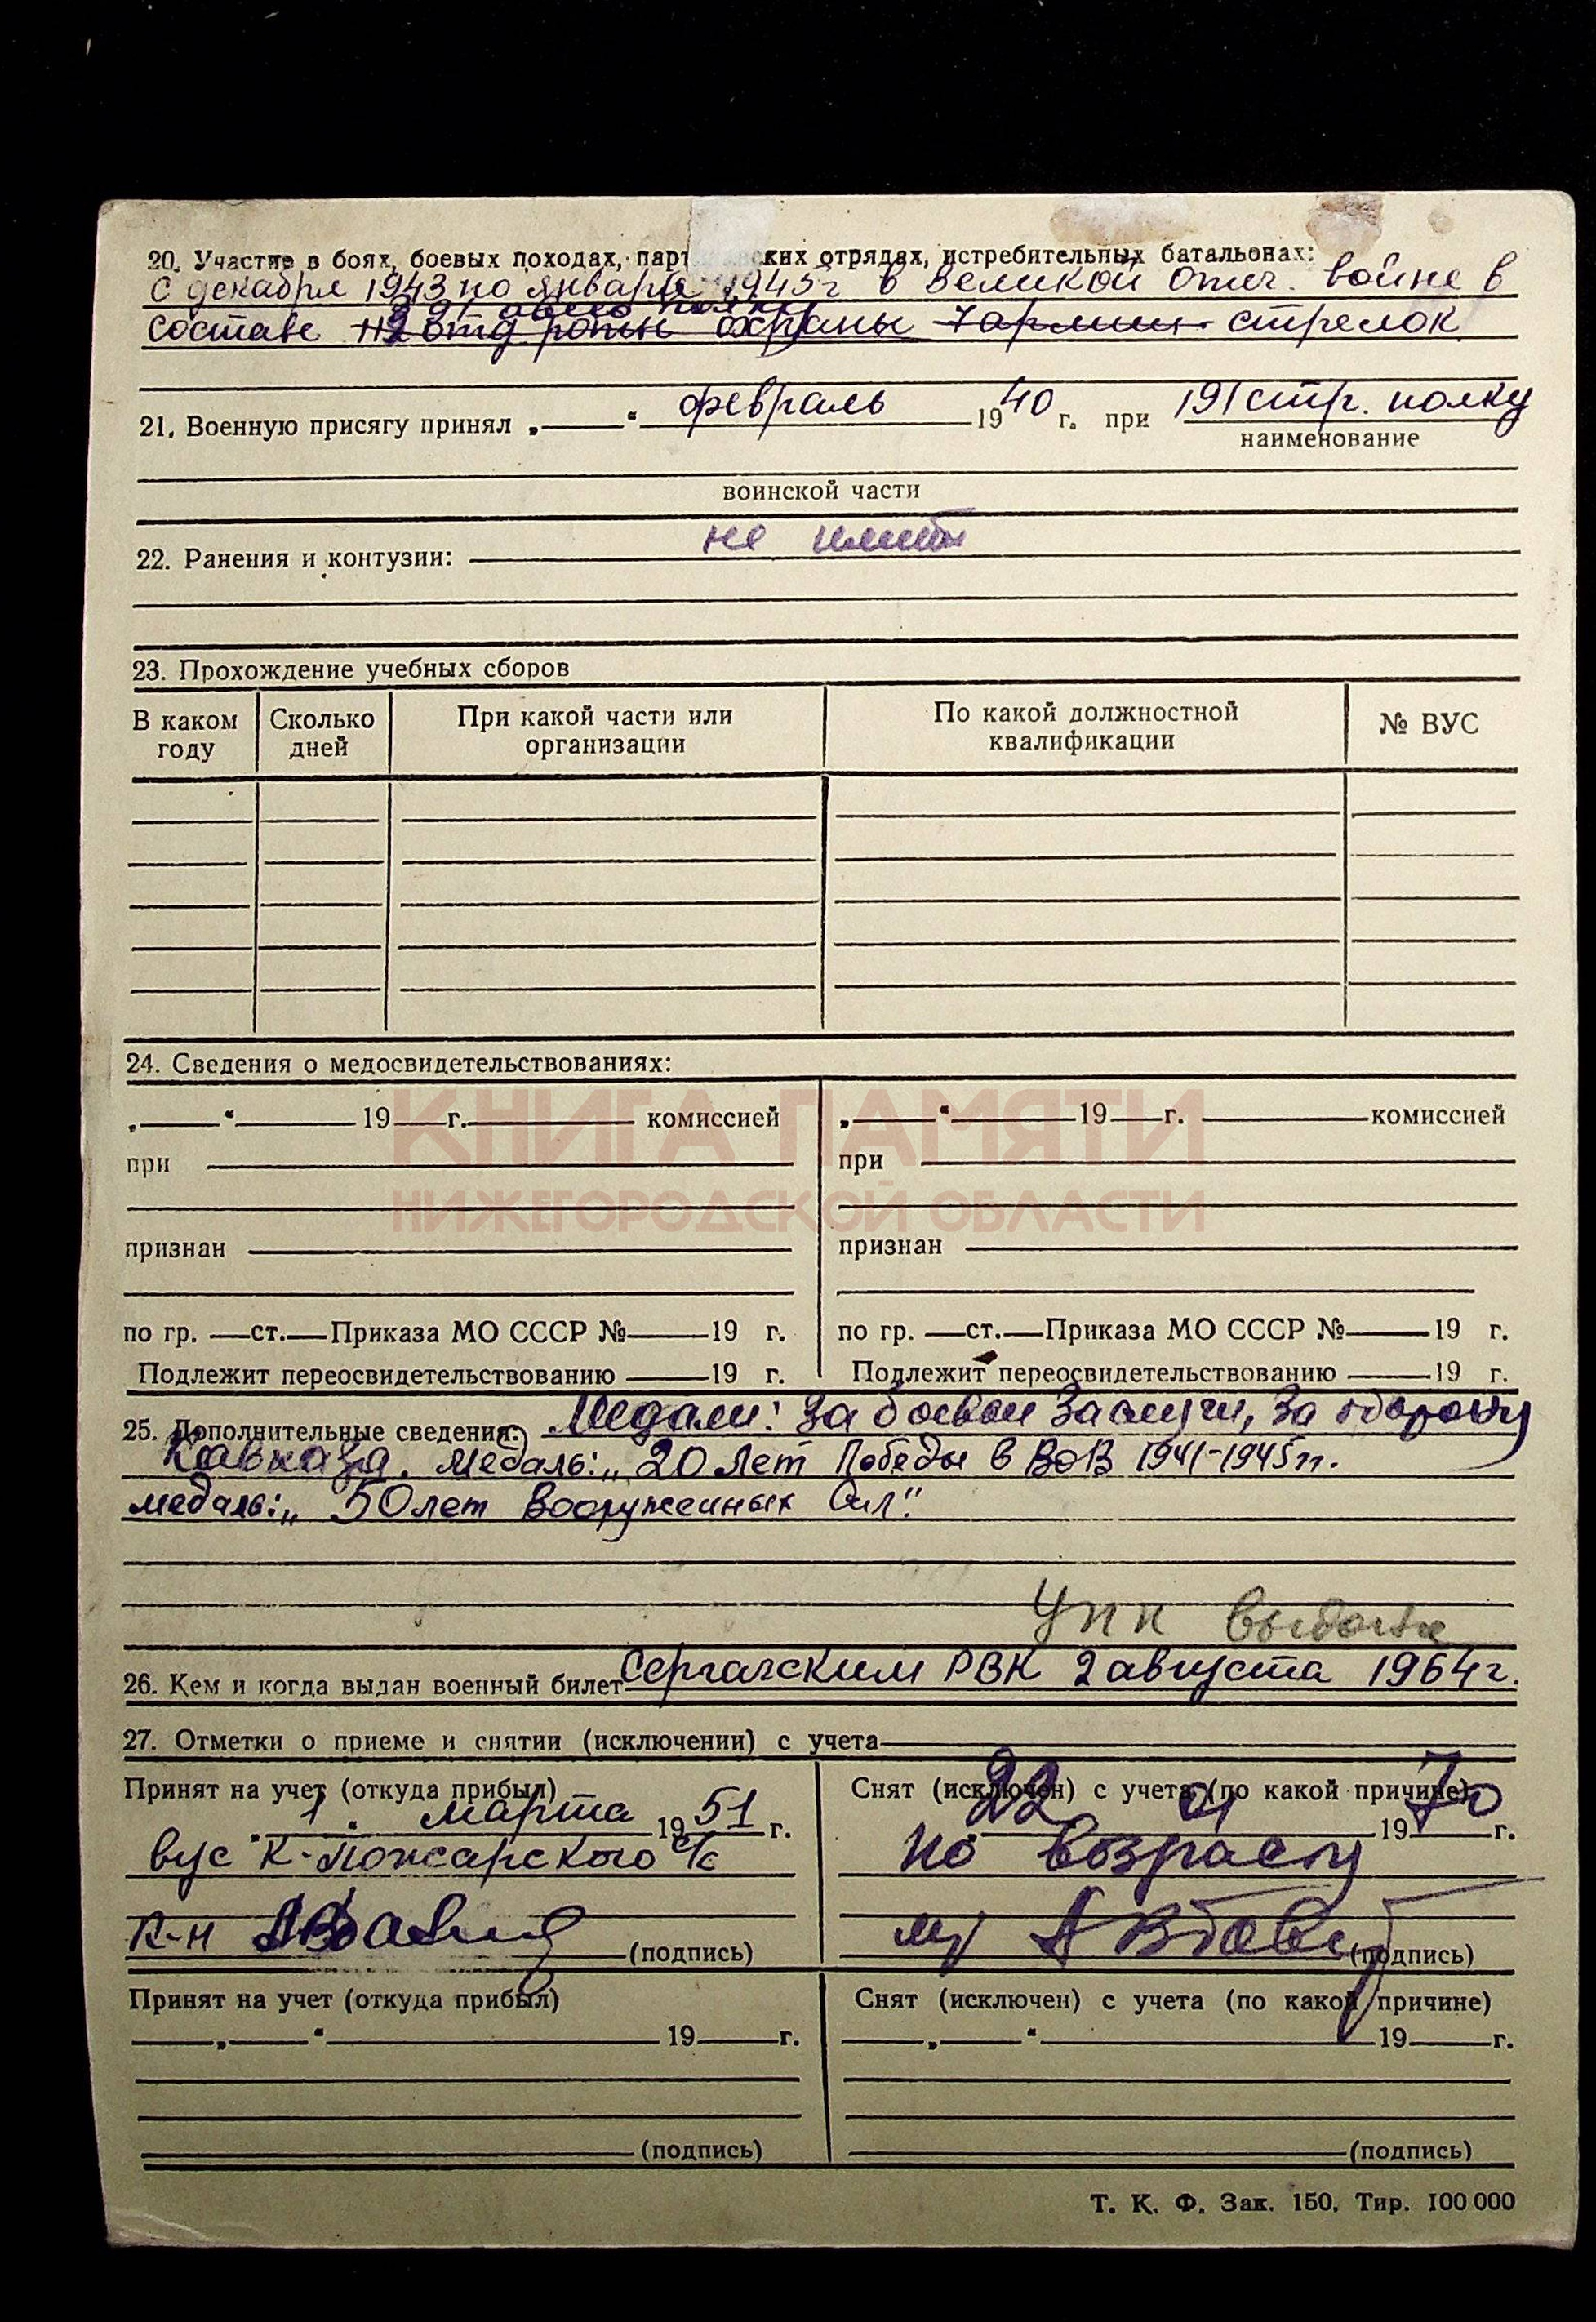 20. Участие в боях, боевых походах, парт ских отрядах, истребительных батальонах:
с декабря 1943 по январь 1945 г в Великой Отеч. войне в
составе отд роты охраны 7 армии стрелок
21. Военную присягу принял „ “ февраль 1940 г. при 191 стр. полку
наименование
воинской части
22. Ранения и контузии: не имеет
23. Прохождение учебных сборов
В каком году Сколько дней При какой части или организации По какой должностной квалификации № ВУС
24. Сведения о медосвидетельствованиях:
„ “ 19 г. комиссией „ “ 19 г. комиссией
КНИГА ПАМЯТИ
при при
НИЖЕГОРОДСКОЙ ОБЛАСТИ
признан признан
по гр. ст. Приказа МО СССР № 19 г. по гр. ст. Приказа МО СССР № 19 г.
Подлежит переосвидетельствованию 19 г. Подлежит переосвидетельствованию 19 г.
25. Дополнительные сведения: Медали: За боевые заслуги, За оборону
Кавказа. Медаль: „20 лет Победы в ВОВ 1941-1945 гг.
медаль: „50 лет Вооруженных Сил"
УПК
26. Кем и когда выдан военный билет Сергачским РВК 2 августа 1964 г.
27. Отметки о приеме и снятии (исключении) с учета
Принят на учет (откуда прибыл) Снят (исключен) с учета (по какой причине)
„1“ марта 1951 г. 22 01 1970 г.
вус К-Пожарского с/с по возрасту
к-н (подпись) (подпись)
Принят на учет (откуда прибыл) Снят (исключен) с учета (по какой причине)
„ “ 19 г. „ “ 19 г.
(подпись) (подпись)
Т. К. Ф. Зак. 150. Тир. 100 000